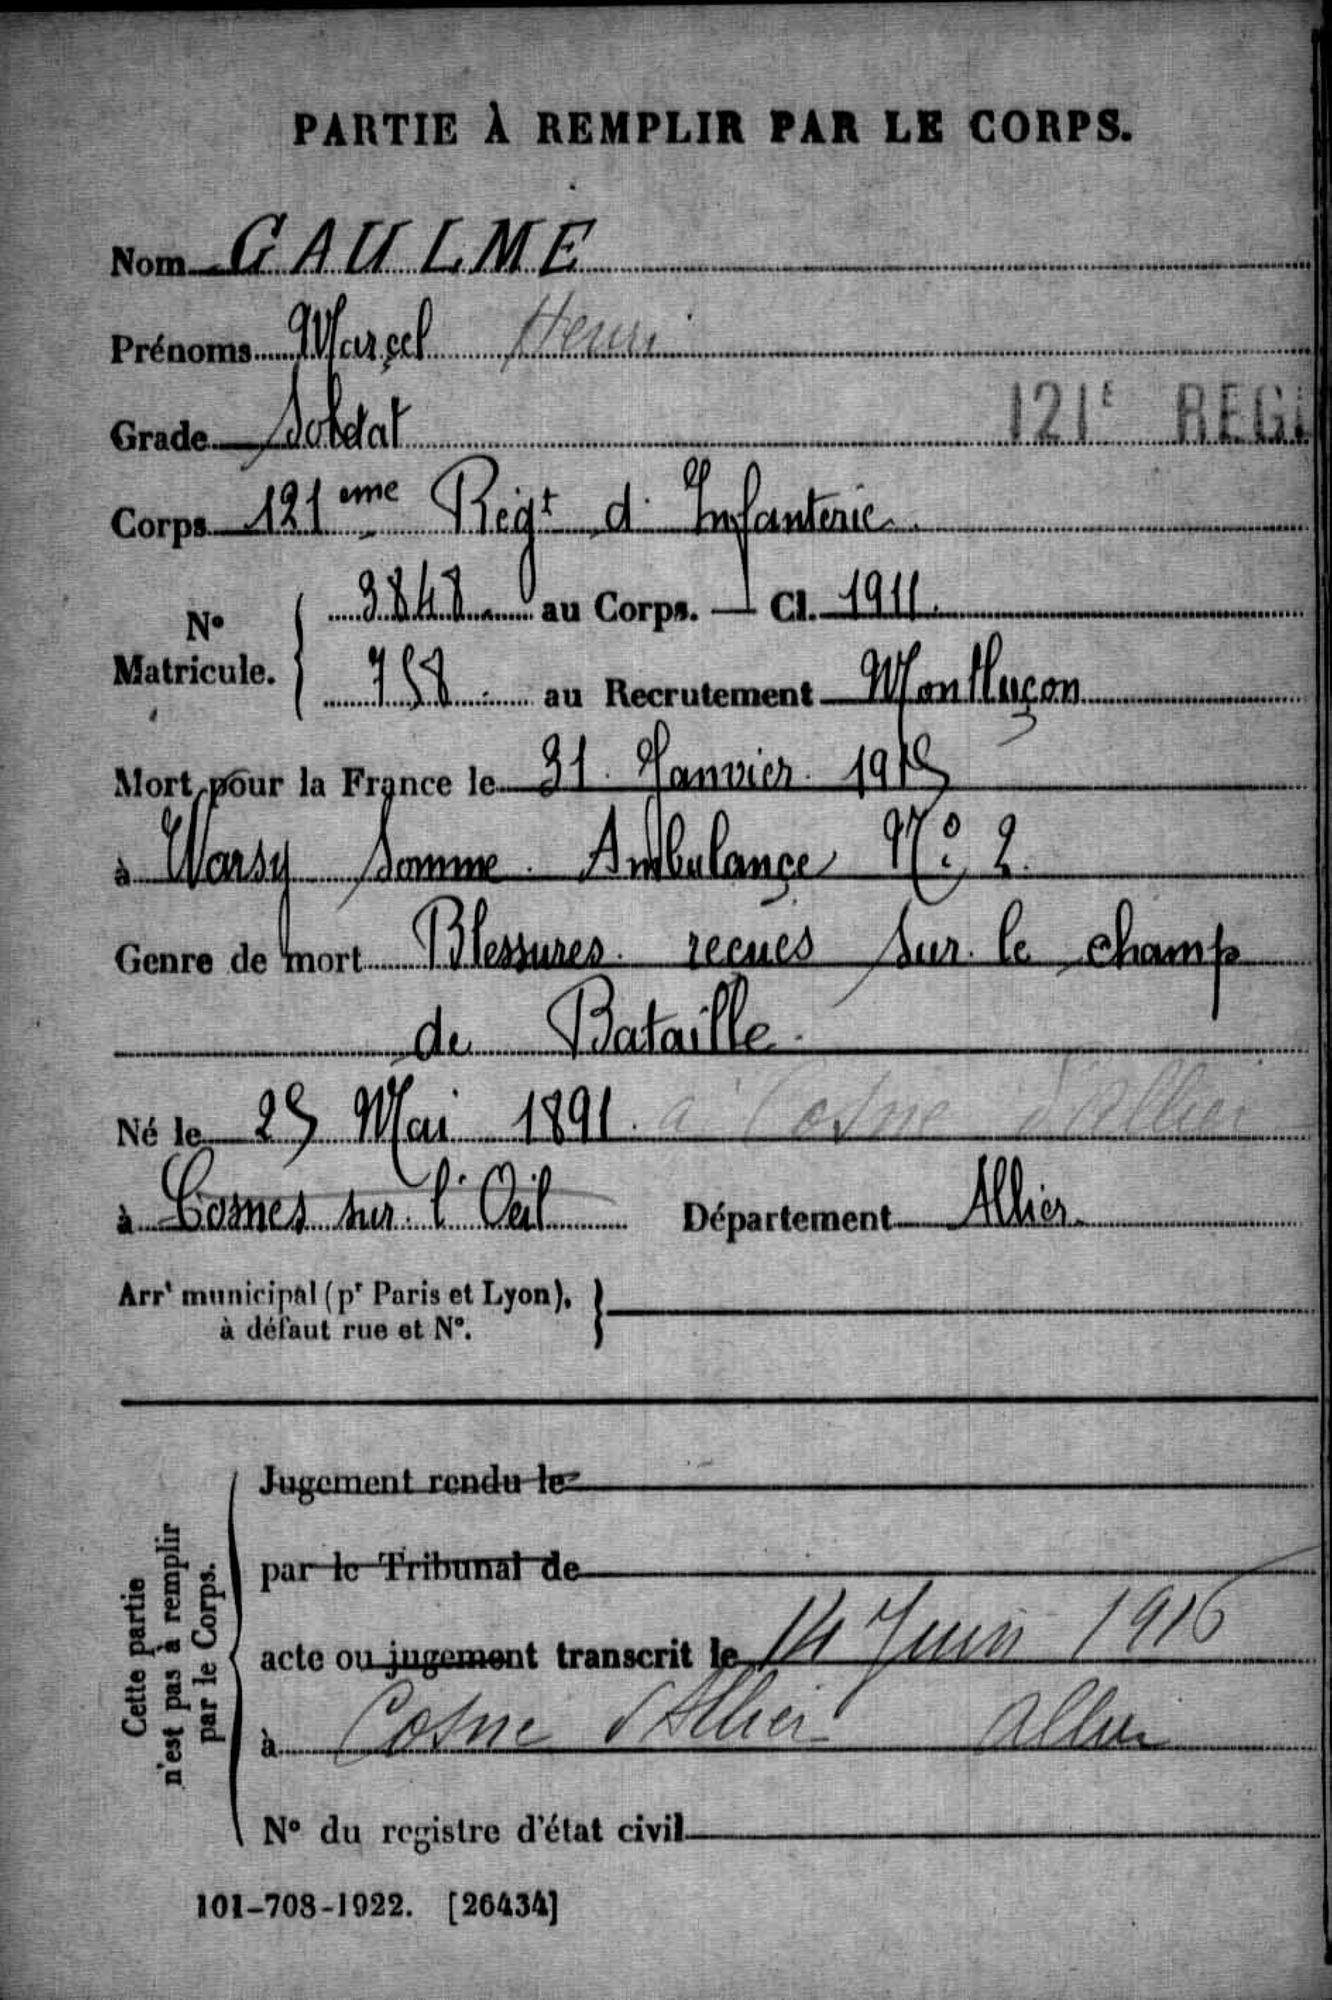 PARTIE À REMPLIR PAR LE CORPS.
Nom GAULME
Prénoms Marcel Henri
Grade Soldat 121e REGI
Corps 121eme Régt d'Infanterie
N° Matricule. { 3848 au Corps. — Cl. 1911.
758 au Recrutement Montluçon
Mort pour la France le 31 Janvier 1915
à Warsy Somme Ambulance N° 2.
Genre de mort Blessures recues sur le champ
de Bataille
Né le 25 Mai 1891. à Cosne d'Allier
à Cosnes sur l'Oeil Département Allier
Arrt municipal (pr Paris et Lyon), }
à défaut rue et N°.
Cette partie
n'est pas à remplir
par le Corps.
Jugement rendu le
par le Tribunal de
acte ou jugement transcrit le 14 Juin 1916
à Cosne d'Allier Allier
N° du registre d'état civil
101-708-1922. [26434]